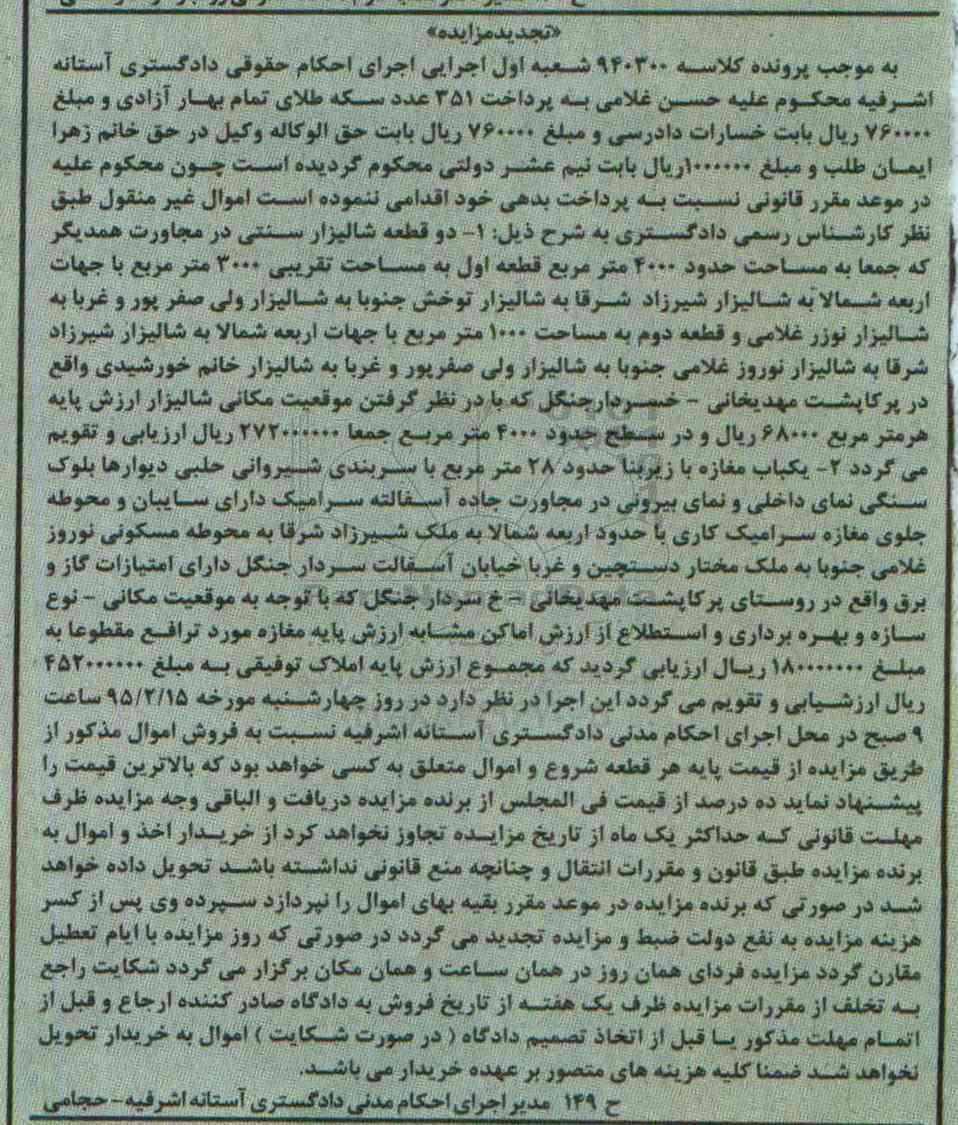 «تجدیدمزایده»
به موجب پرونده کلاسه ۹۴۰۳۰۰ شعبه اول اجرایی اجرای احکام حقوقی دادگستری آستانه
اشرفیه محکوم علیه حسن غلامی به پرداخت ۳۵۱ عدد سکه طلای تمام بهار آزادی و مبلغ
۷۶۰۰۰۰ ریال بابت خسارات دادرسی و مبلغ ۷۶۰۰۰۰ ریال بابت حق الوکاله وکیل در حق خانم زهرا
ایمان طلب و مبلغ ۱۰۰۰۰۰۰ریال بابت نیم عشر دولتی محکوم گردیده است چون محکوم علیه
در موعد مقرر قانونی نسبت به پرداخت بدهی خود اقدامی ننموده است اموال غیر منقول طبق
نظر کارشناس رسمی دادگستری به شرح ذیل: ۱- دو قطعه شالیزار سنتی در مجاورت همدیگر
که جمعا به مساحت حدود ۴۰۰۰ متر مربع قطعه اول به مساحت تقریبی ۳۰۰۰ متر مربع با جهات
اربعه شمالا به شالیزار شیرزاد شرقا به شالیزار توخش جنوبا به شالیزار ولی صفر پور و غربا به
شالیزار نوزر غلامی و قطعه دوم به مساحت ۱۰۰۰ متر مربع با جهات اربعه شمالا به شالیزار شیرزاد
شرقا به شالیزار نوروز غلامی جنوبا به شالیزار ولی صفرپور و غربا به شالیزار خانم خورشیدی واقع
در پرکاپشت مهدیخانی - خسردارجنگل که با در نظر گرفتن موقعیت مکانی شالیزار ارزش پایه
هرمتر مربع ۶۸۰۰۰ ریال و در سطح حدود ۴۰۰۰ متر مربع جمعا ۲۷۲۰۰۰۰۰۰ ریال ارزیابی و تقویم
می گردد ۲- یکباب مغازه با زیربنا حدود ۲۸ متر مربع با سربندی شیروانی حلبی دیوارها بلوک
سنگی نمای داخلی و نمای بیرونی در مجاورت جاده آسفالته سرامیک دارای سایبان و محوطه
جلوی مغازه سرامیک کاری با حدود اربعه شمالا به ملک شیرزاد شرقا به محوطه مسکونی نوروز
غلامی جنوبا به ملک مختار دستچین و غربا خیابان آسفالت سردار جنگل دارای امتیازات گاز و
برق واقع در روستای پرکاپشت مهدیخانی - خ سردار جنگل که با توجه به موقعیت مکانی - نوع
سازه و بهره برداری و استطلاع از ارزش اماکن مشابه ارزش پایه مغازه مورد ترافع مقطوعا به
مبلغ ۱۸۰۰۰۰۰۰۰ ریال ارزیابی گردید که مجموع ارزش پایه املاک توفیقی به مبلغ ۴۵۲۰۰۰۰۰۰
ریال ارزشیابی و تقویم می گردد این اجرا در نظر دارد در روز چهارشنبه مورخه ۹۵/۲/۱۵ ساعت
۹ صبح در محل اجرای احکام مدنی دادگستری آستانه اشرفیه نسبت به فروش اموال مذکور از
طریق مزایده از قیمت پایه هر قطعه شروع و اموال متعلق به کسی خواهد بود که بالاترین قیمت را
پیشنهاد نماید ده درصد از قیمت فی المجلس از برنده مزایده دریافت و الباقی وجه مزایده ظرف
مهلت قانونی که حداکثر یک ماه از تاریخ مزایده تجاوز نخواهد کرد از خریدار اخذ و اموال به
برنده مزایده طبق قانون و مقررات انتقال و چنانچه منع قانونی نداشته باشد تحویل داده خواهد
شد در صورتی که برنده مزایده در موعد مقرر بقیه بهای اموال را نپردازد سپرده وی پس از کسر
هزینه مزایده به نفع دولت ضبط و مزایده تجدید می گردد در صورتی که روز مزایده با ایام تعطیل
مقارن گردد مزایده فردای همان روز در همان ساعت و همان مکان برگزار می گردد شکایت راجع
به تخلف از مقررات مزایده ظرف یک هفته از تاریخ فروش به دادگاه صادر کننده ارجاع و قبل از
اتمام مهلت مذکور یا قبل از اتخاذ تصمیم دادگاه ( در صورت شکایت ) اموال به خریدار تحویل
نخواهد شد ضمنا کلیه هزینه های متصور بر عهده خریدار می باشد.
ح ۱۴۹ مدیر اجرای احکام مدنی دادگستری آستانه اشرفیه - حجامی